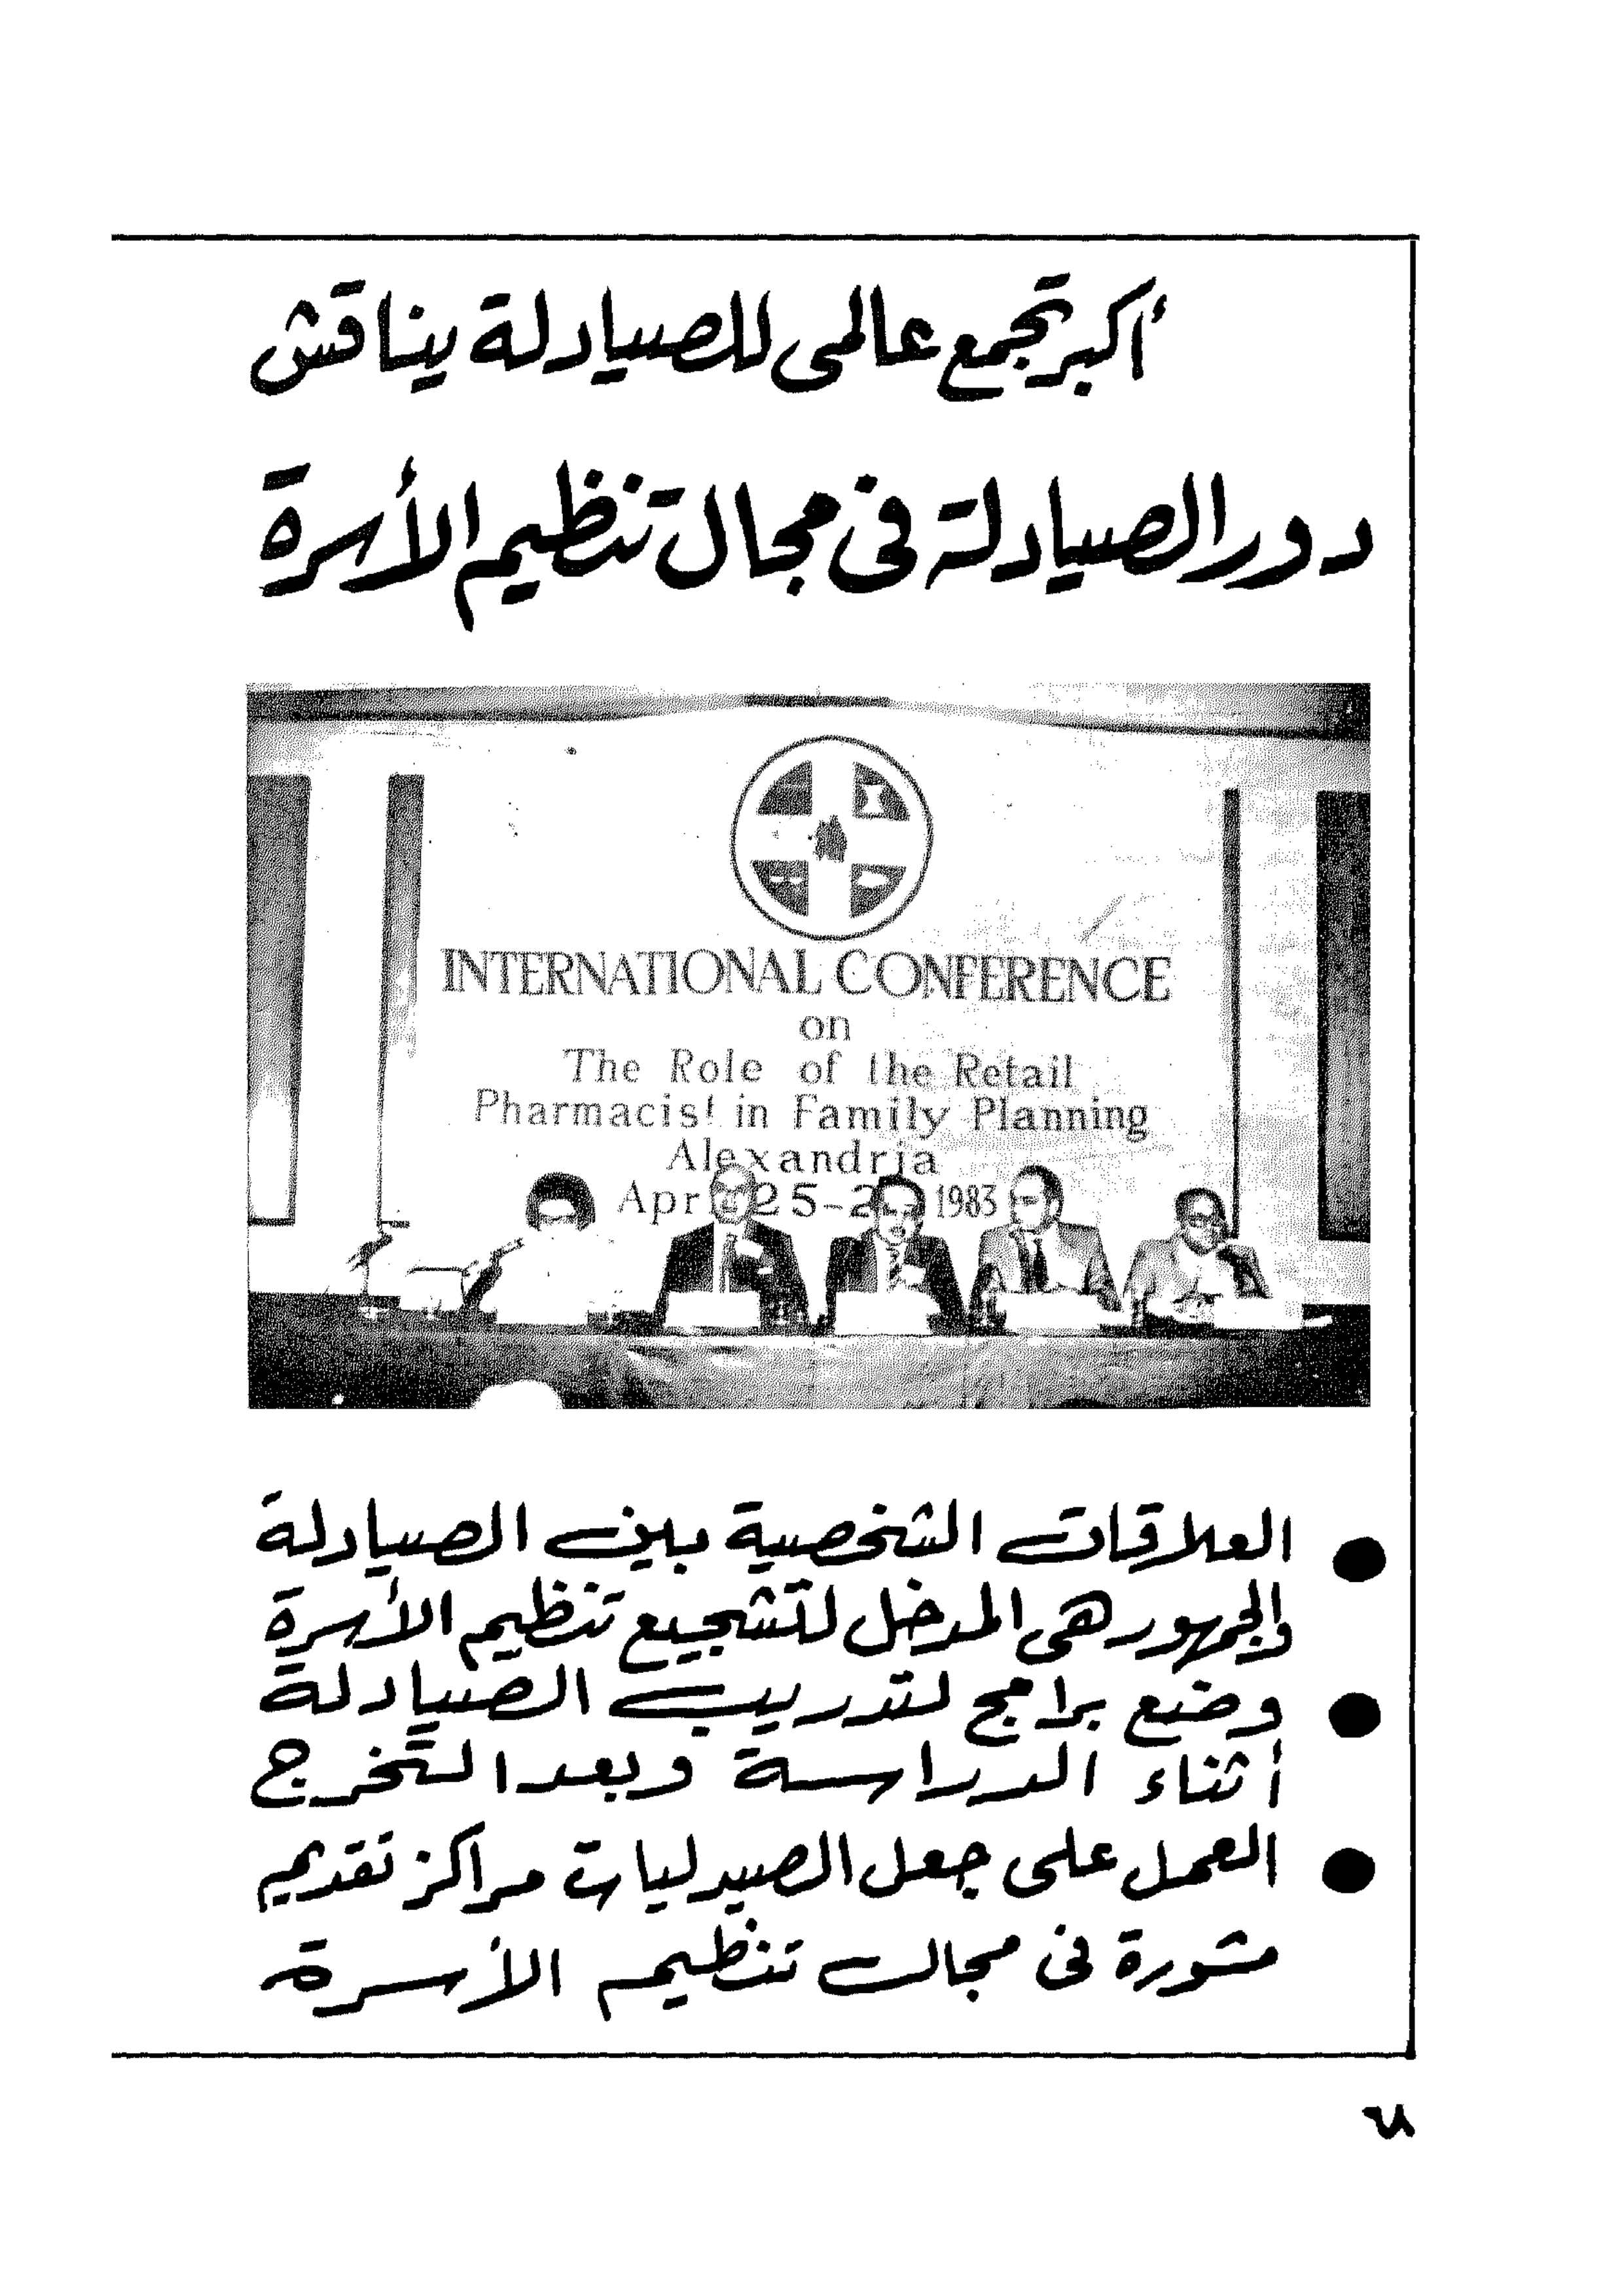 أكبر تجمع عالمى للصيادلة يناقش
دور الصيادلة فى مجال تنظيم الأسرة
INTERNATIONAL CONFERENCE
on
The Role of the Retail
Pharmacist in Family Planning
Alexandria
Apr 25-2 1983
● العلاقات الشخصية بين الصيادلة
والجمهور هى المدخل لتشجيع تنظيم الأسرة
● وضع برامج لتدريب الصيادلة
أثناء الدراسة وبعد التخرج
● العمل على جعل الصيدليات مراكز تقديم
مشورة فى مجال تنظيم الأسرة
٦٨